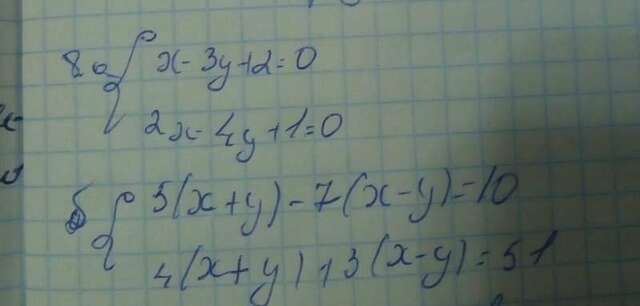 8 a { x - 3y + 2 = 0
2x - 4y + 1 = 0
б { 5(x + y) - 7(x - y) = 10
4(x + y) + 3(x - y) = 51